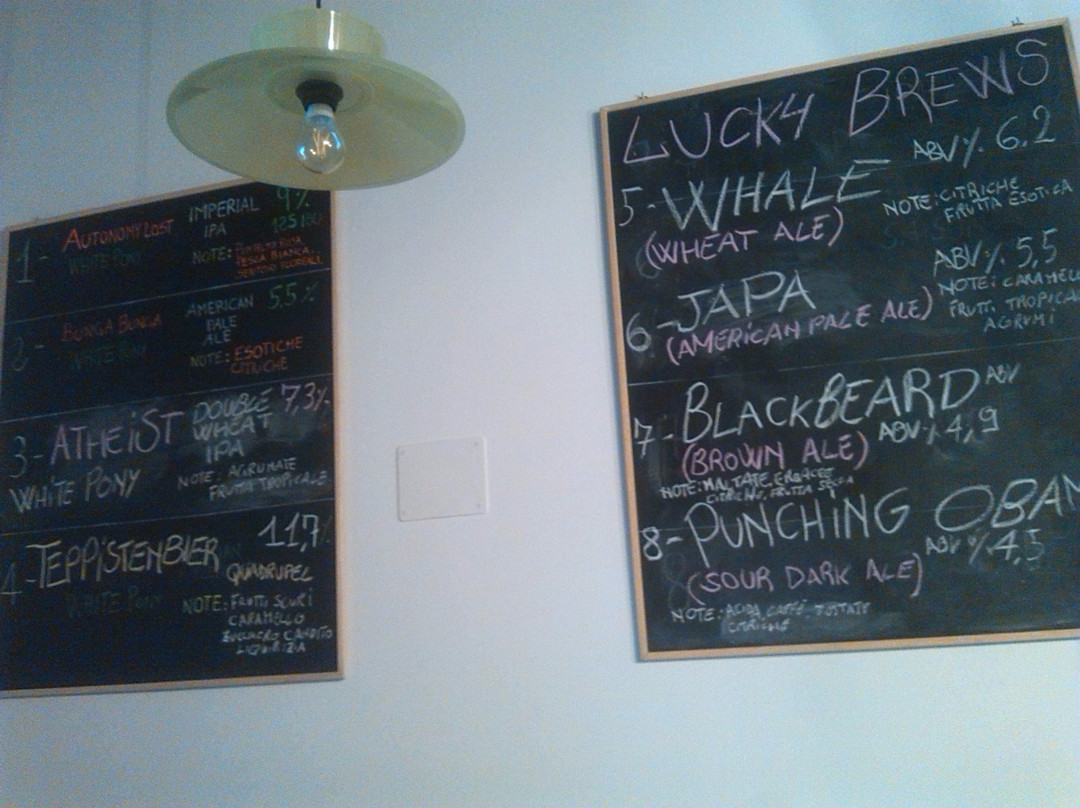 1- AUTONOMY LOST IMPERIAL 9%
WHITE PONY IPA 125 IBU
NOTE: POMPELMO ROSA
PESCA BIANCA
SENTORI FLOREALI
2- BUNGA BUNGA AMERICAN 5.5%
WHITE PONY PALE
ALE
NOTE: ESOTICHE
CITRICHE
3- ATHEIST DOUBLE 7,3%
WHEAT
IPA
WHITE PONY NOTE: AGRUMATE
FRUTTA TROPICALE
4- TEPPISTENBIER 11,7%
QUADRUPEL
WHITE PONY NOTE: FRUTTI SCURI
CARAMELLO
ZUCCHERO CANDITO
LIQUIRIZIA
LUCKY BREWS
5- WHALE ABV% 6.2
(WHEAT ALE) NOTE: CITRICHE
FRUTTA ESOTICA
6- JAPA ABV% 5,5
(AMERICAN PALE ALE) NOTE: CARAMELL
FRUTTI TROPICAL
AGRUMI
7- BLACKBEARD ABV
(BROWN ALE) ABV% 4,9
NOTE: MALTATE, ERBACEE
CITRICHE, FRUTTA SECCA
8- PUNCHING OBAM
(SOUR DARK ALE) ABV % 4,5
NOTE: ACIDA, CAFFÈ, TOSTATE
CITRICHE